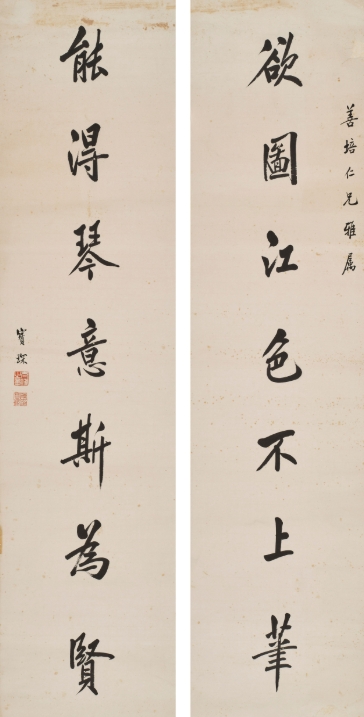 善培仁兄雅属
欲圖江色不上筆
能得琴意斯為賢
寶琛